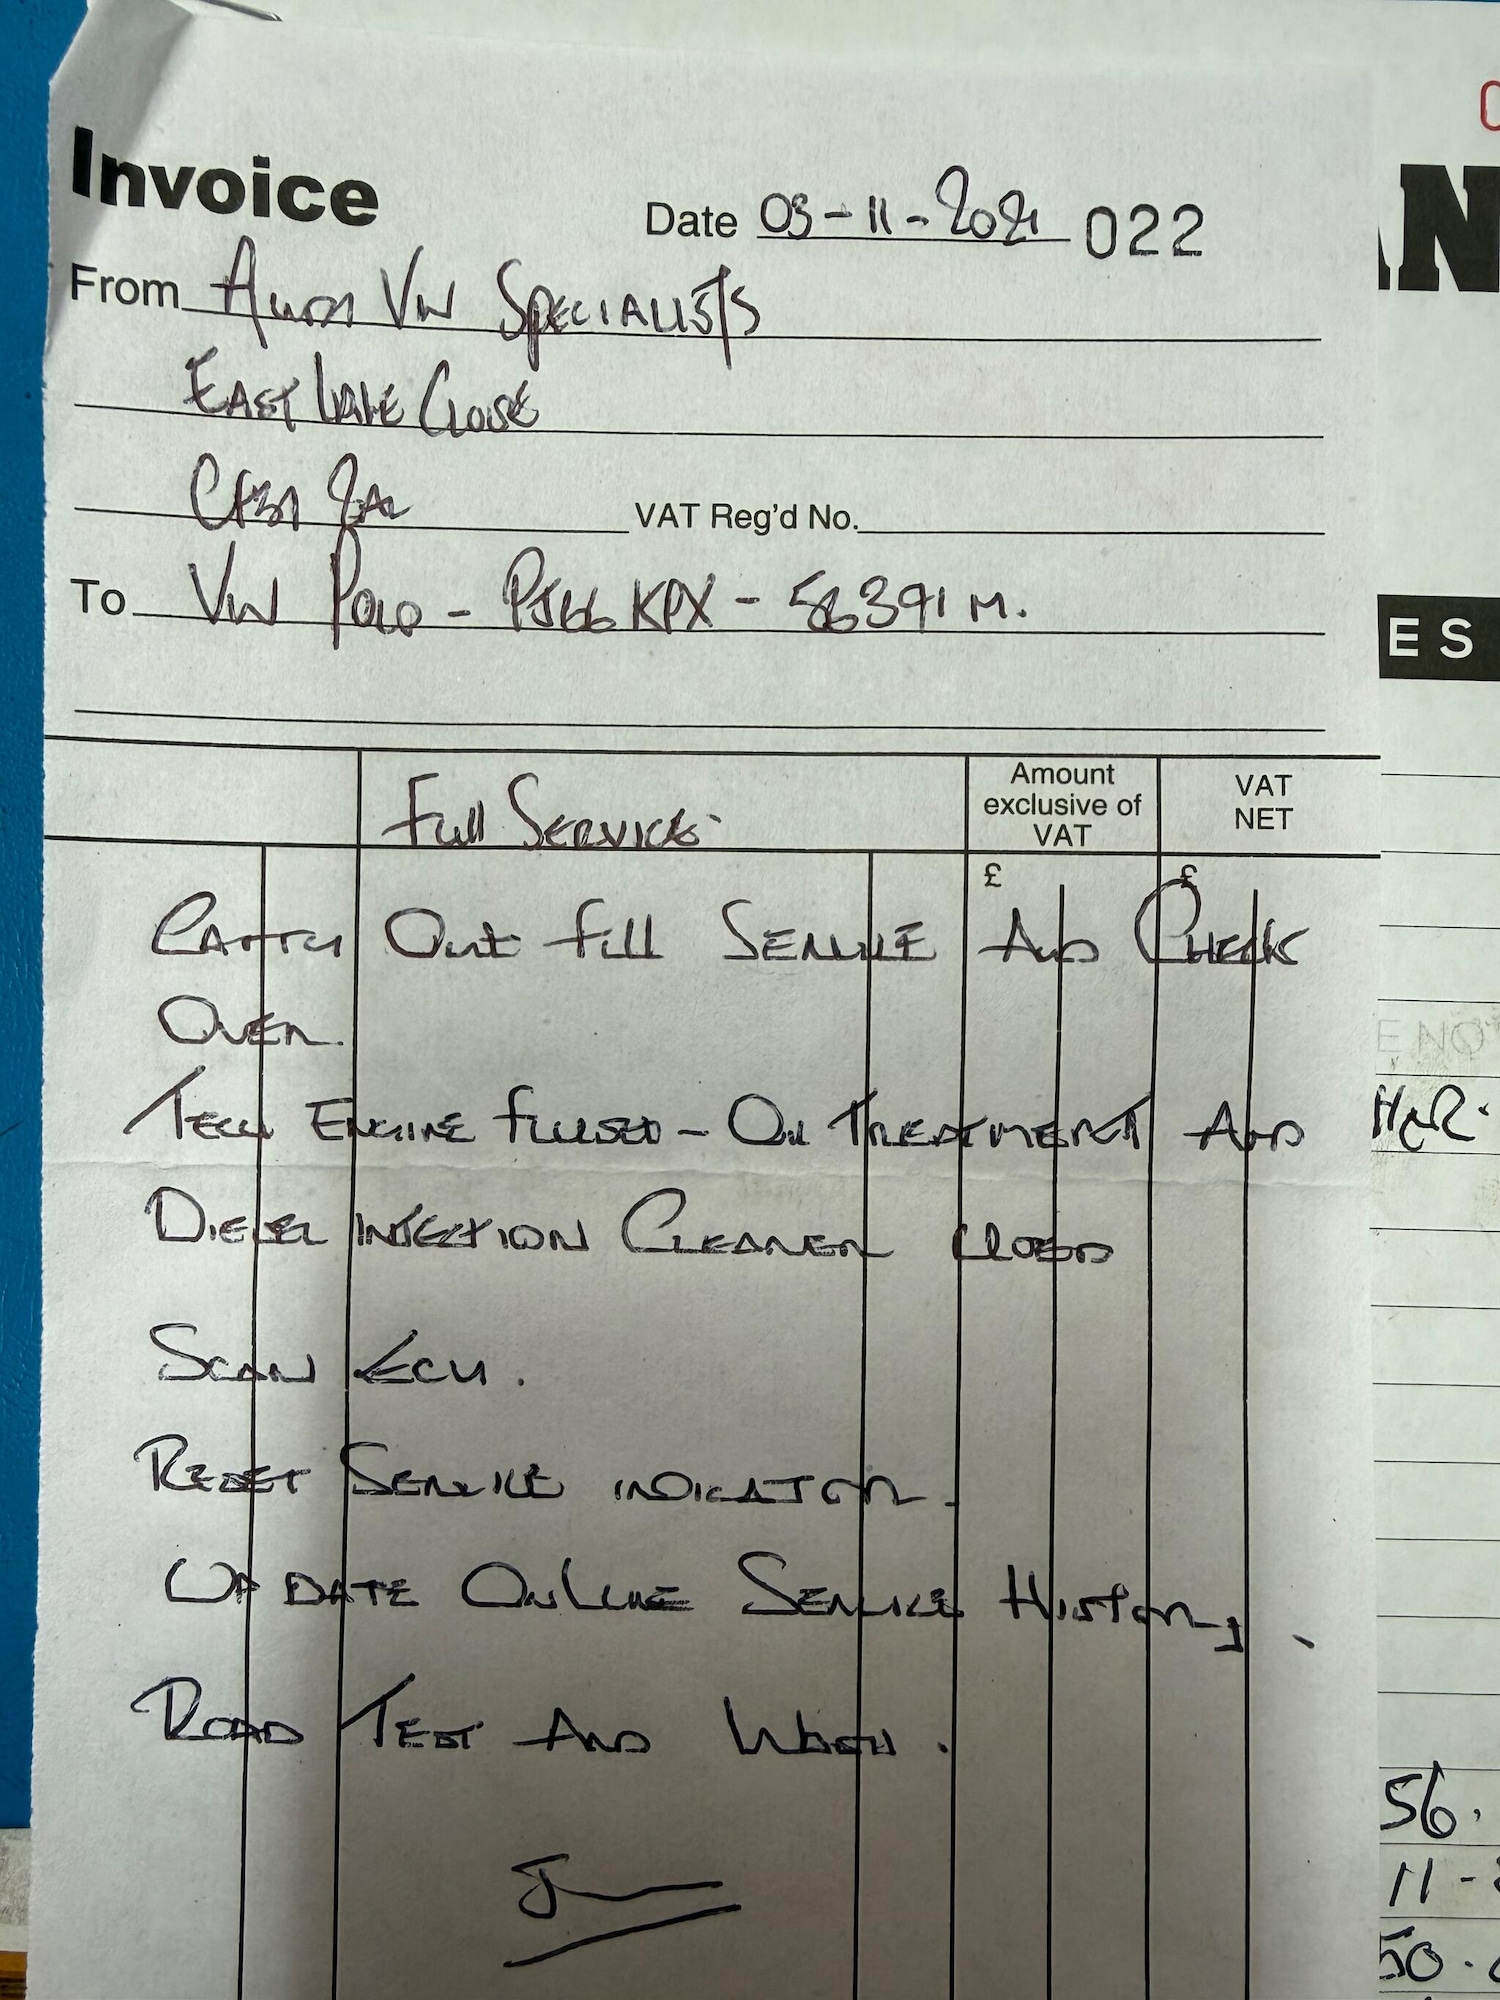 Invoice
Date 03-11-2021 022
From Audi VW SPECIALISTS
EAST LAKE CLOSE
VAT Reg'd No.
To VW POLO - PJ66 KPX - 56391 M.
Full SERVICE.
Amount
exclusive of
VAT
VAT
NET
£ £
CARRY OUT full SERVICE AND CHECK
OVER.
TECH ENGINE FLUSED - OIL TREATMENT AND
DIESEL INJECTION CLEANER USED
SCAN ECU.
RESET SERVICE INDICATOR.
UPDATE ONLINE SERVICE HISTORY.
ROAD TEST AND WASH.
N
ES
E NO
56.
11-
50.